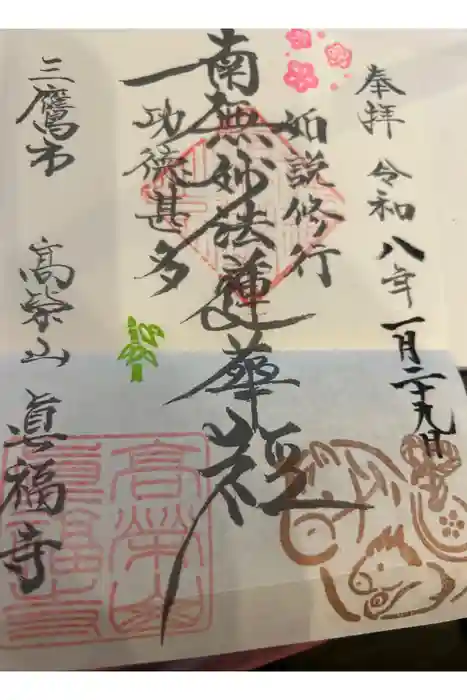 奉拝 令和八年一月二十九日
如説修行
南無妙法蓮華経
功徳甚多
三鷹市 高榮山 眞福寺
高榮山
眞福寺